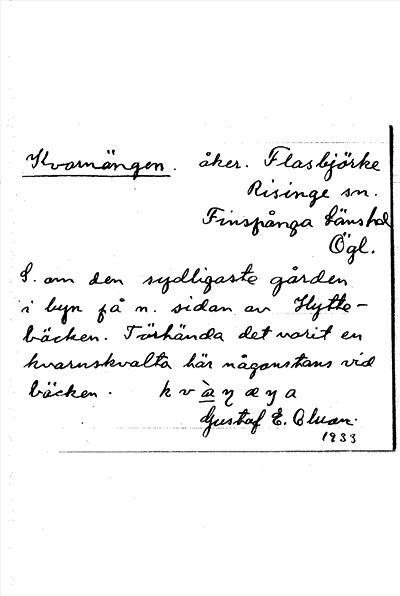 Kvarnängen. åker. Flasbjörke
Risinge sn.
Finspånga länshd
Ögl.
S. om den sydligaste gården
i byn på n. sidan av Hytte-
bäcken. Törhända det varit en
kvarnskvalta här någonstans vid
bäcken.
Gustaf E. Olsson.
1933